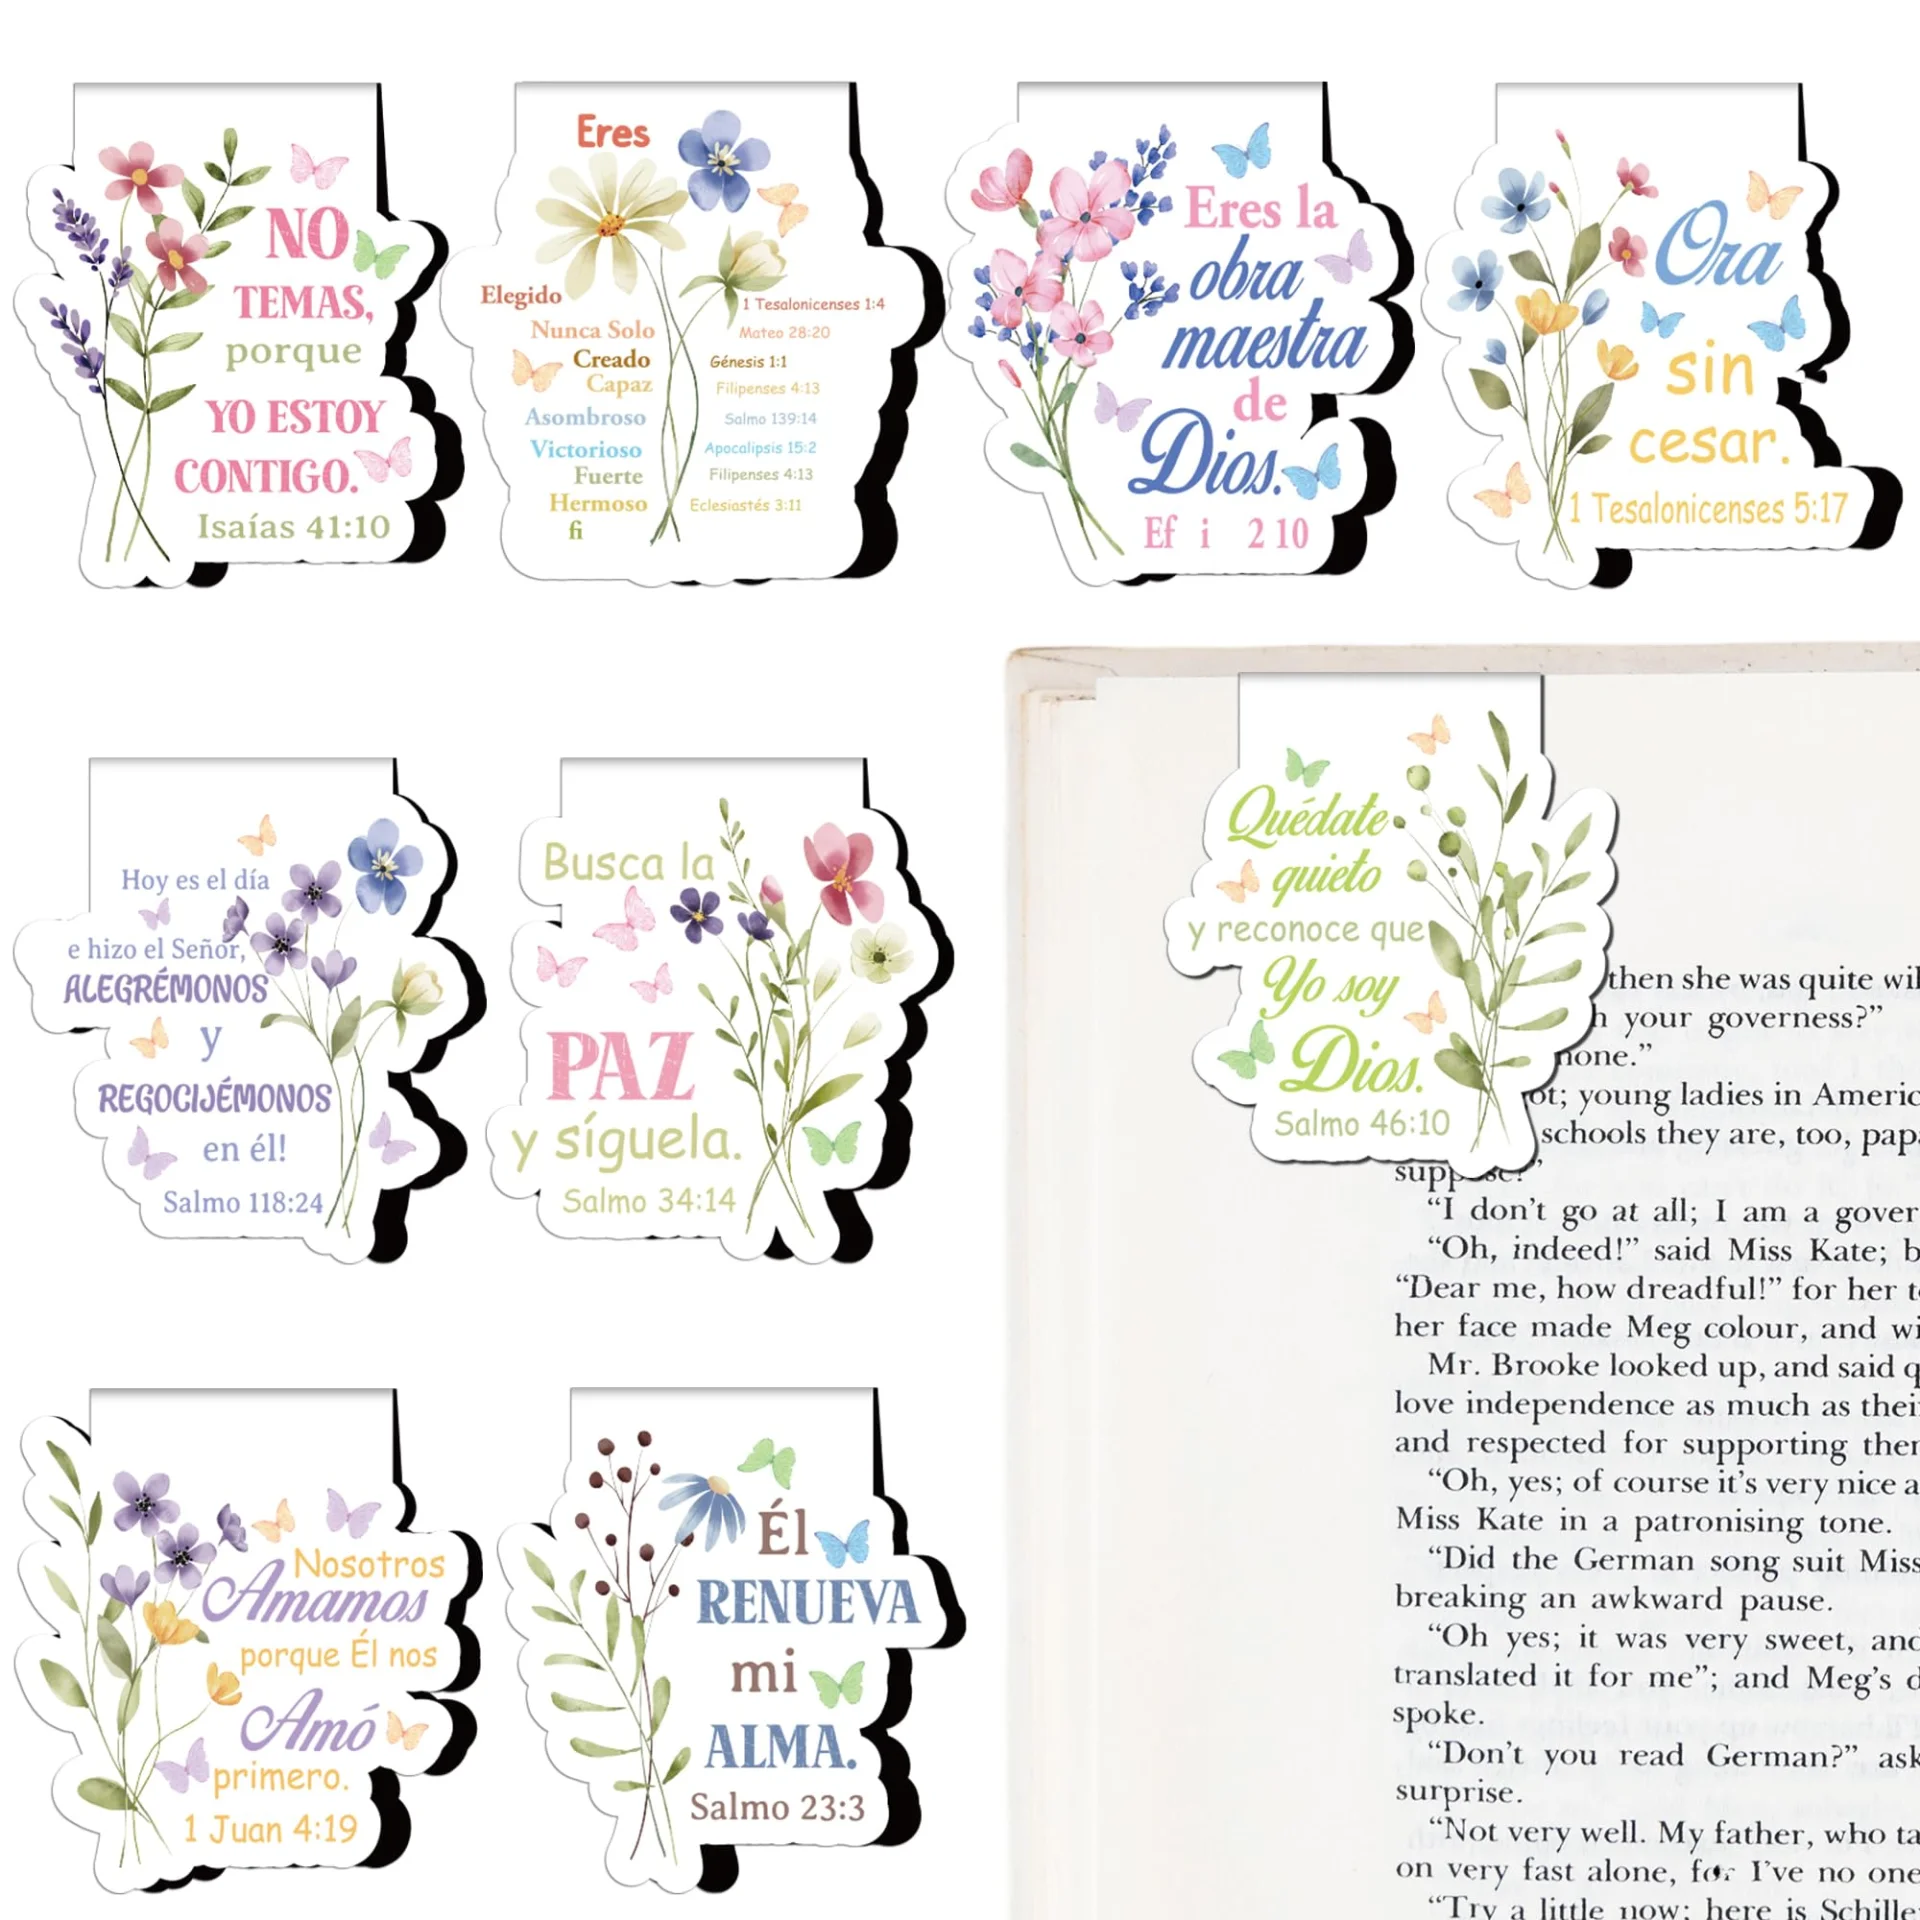 NO
TEMAS,
porque
YO ESTOY
CONTIGO.
Isaías 41:10
Eres
Elegido
1 Tesalonicenses 1:4
Nunca Solo
Mateo 28:20
Creado
Génesis 1:1
Capaz
Filipenses 4:13
Asombroso
Salmo 139:14
Victorioso
Apocalipsis 15:2
Fuerte
Filipenses 4:13
Hermoso
Eclesiastés 3:11
fi
Eres la
obra
maestra
de
Dios.
Ef i 2 10
Ora
sin
cesar.
1 Tesalonicenses 5:17
Hoy es el día
e hizo el Señor,
ALEGRÉMONOS
y
REGOCIJÉMONOS
en él!
Salmo 118:24
Busca la
PAZ
y síguela.
Salmo 34:14
Quédate
quieto
y reconoce que
Yo soy
Dios.
Salmo 46:10
Nosotros
Amamos
porque Él nos
Amó
primero.
1 Juan 4:19
Él
RENUEVA
mi
ALMA.
Salmo 23:3
then she was quite wil
h your governess?”
none.”
ot; young ladies in Americ
schools they are, too, papa
suppose?”
“I don’t go at all; I am a gover
“Oh, indeed!” said Miss Kate; b
“Dear me, how dreadful!” for her t
her face made Meg colour, and wi
Mr. Brooke looked up, and said q
love independence as much as thei
and respected for supporting ther
“Oh, yes; of course it’s very nice a
Miss Kate in a patronising tone.
“Did the German song suit Miss
breaking an awkward pause.
“Oh yes; it was very sweet, and
translated it for me”; and Meg’s d
spoke.
“Don’t you read German?” ask
surprise.
“Not very well. My father, who ta
on very fast alone, for I’ve no one
“Try a little now; here is Schille